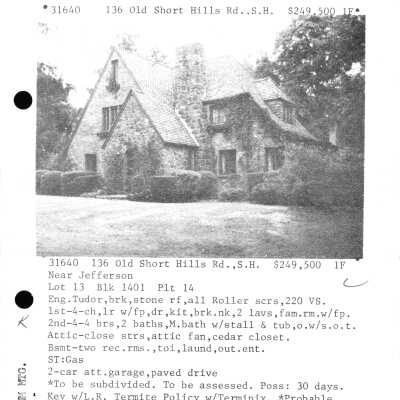 *31640 136 Old Short Hills Rd..,S.H. $249,500 1F*
31640 136 Old Short Hills Rd.,S.H. $249,500 1F
Near Jefferson
Lot 13 Blk 1401 Plt 14
Eng.Tudor,brk,stone rf,all Roller scrs,220 VS.
1st-4-ch,lr w/fp,dr,kit,brk.nk,2 lavs,fam.rm.w/fp.
2nd-4-4 brs,2 baths,M.bath w/stall & tub,o.w/s.o.t.
Attic-close strs,attic fan,cedar closet.
Bsmt-two rec.rms.,toi,laund,out.ent.
ST:Gas
2-car att.garage,paved drive
*To be subdivided. To be assessed. Poss: 30 days.
Key w/L.R. Termite Policy w/Terminix. *Probable
M MTG.
K